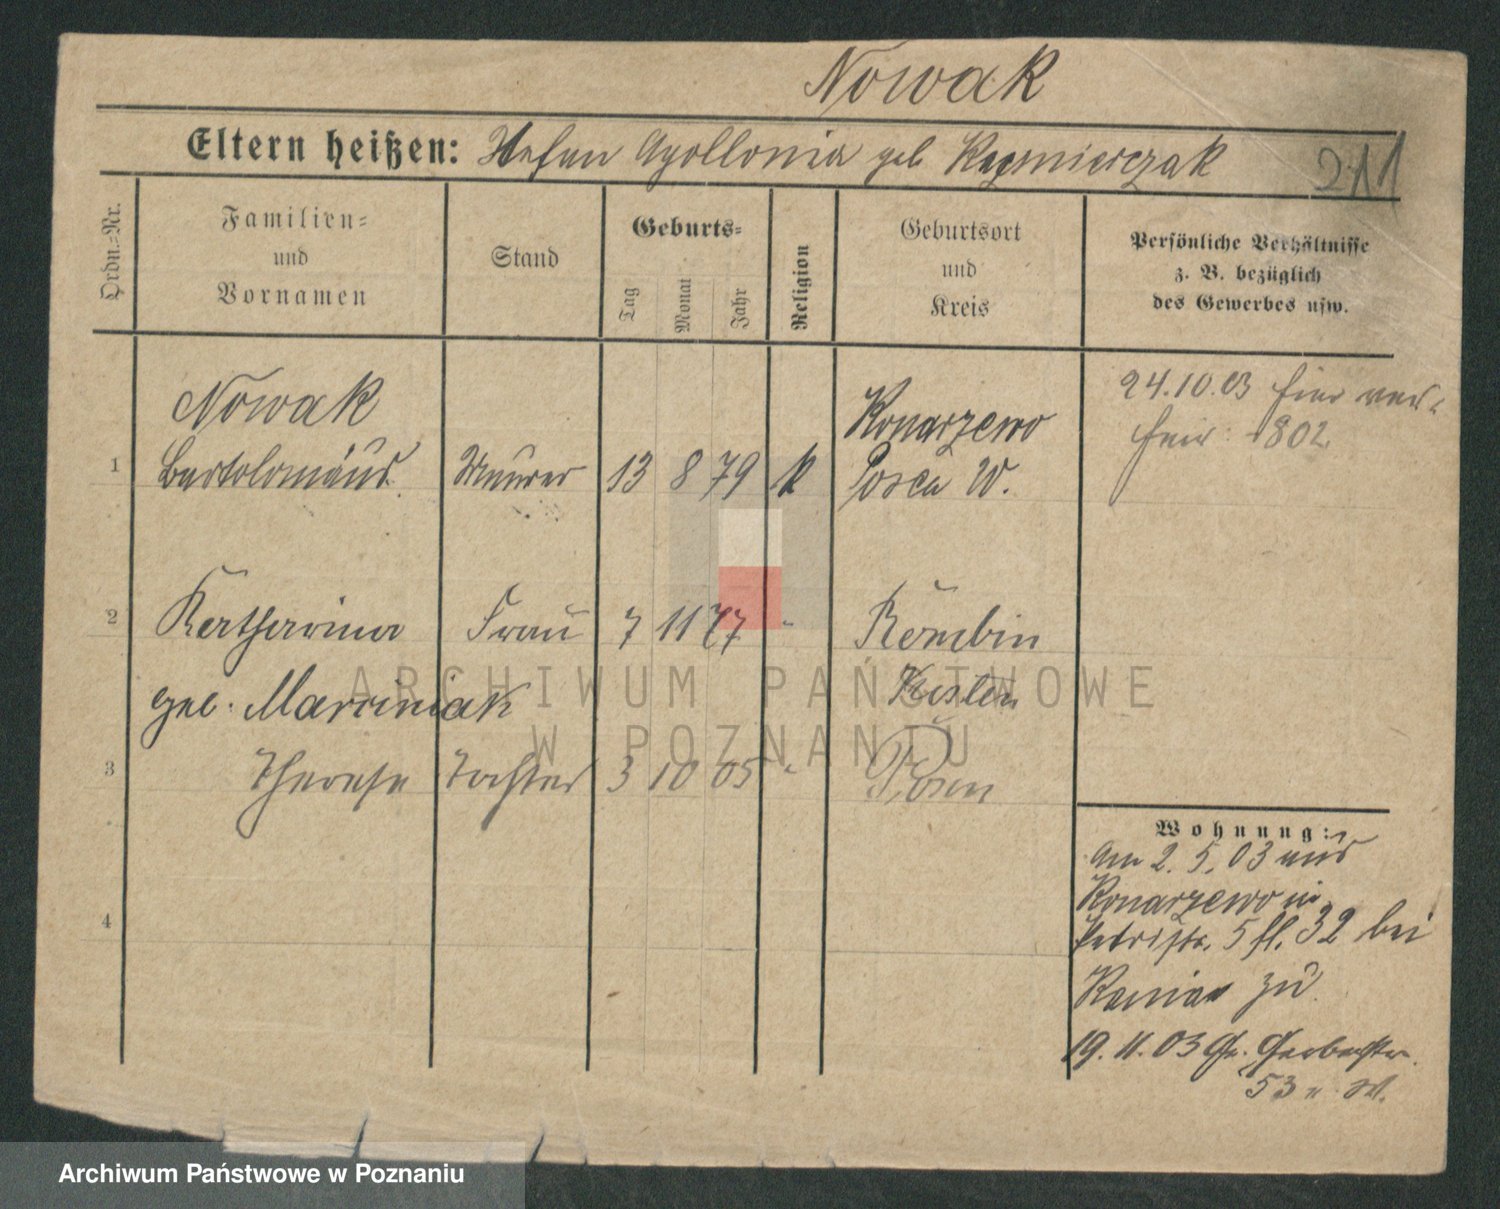 Nowak
Eltern heißen: Stefan Apollonia geb Kazmierczak
211
Ordn.-Nr.
Familien-
und
Vornamen
Stand
Geburts-
Tag
Monat
Jahr
Religion
Geburtsort
und
Kreis
Persönliche Verhältnisse
z. B. bezüglich
des Gewerbes usw.
Nowak
1 Bartolomäus Maurer 13 8 79 k
Konarzewo
Posen W.
24.10.03 hier ver-
heir: 1802
2 Katharina Frau 7 11 77 "
geb. Marciniak
Rombin
Kosten
3 Therese Tochter 3 10 05 "
Posen
4
Wohnung:
Am 2. 5. 03 aus
Konarzewo in
Petristr. 5 32 bei
zu
19. 11. 03 Gr. Gerberstr.
53
ARCHIWUM PAŃSTWOWE
W POZNANIU
Archiwum Państwowe w Poznaniu